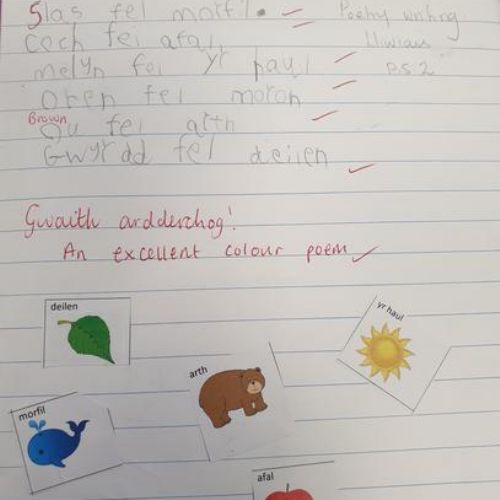 Slas fel morfil. Poetry writing
Coch fel afal, lliwiau
melyn fel yr haul PS2
Oren fel moron
Brown
Du fel arth
Gwyrdd fel deilen
Gwaith ardderchog!
An excellent colour poem
deilen
yr haul
arth
morfil
afal